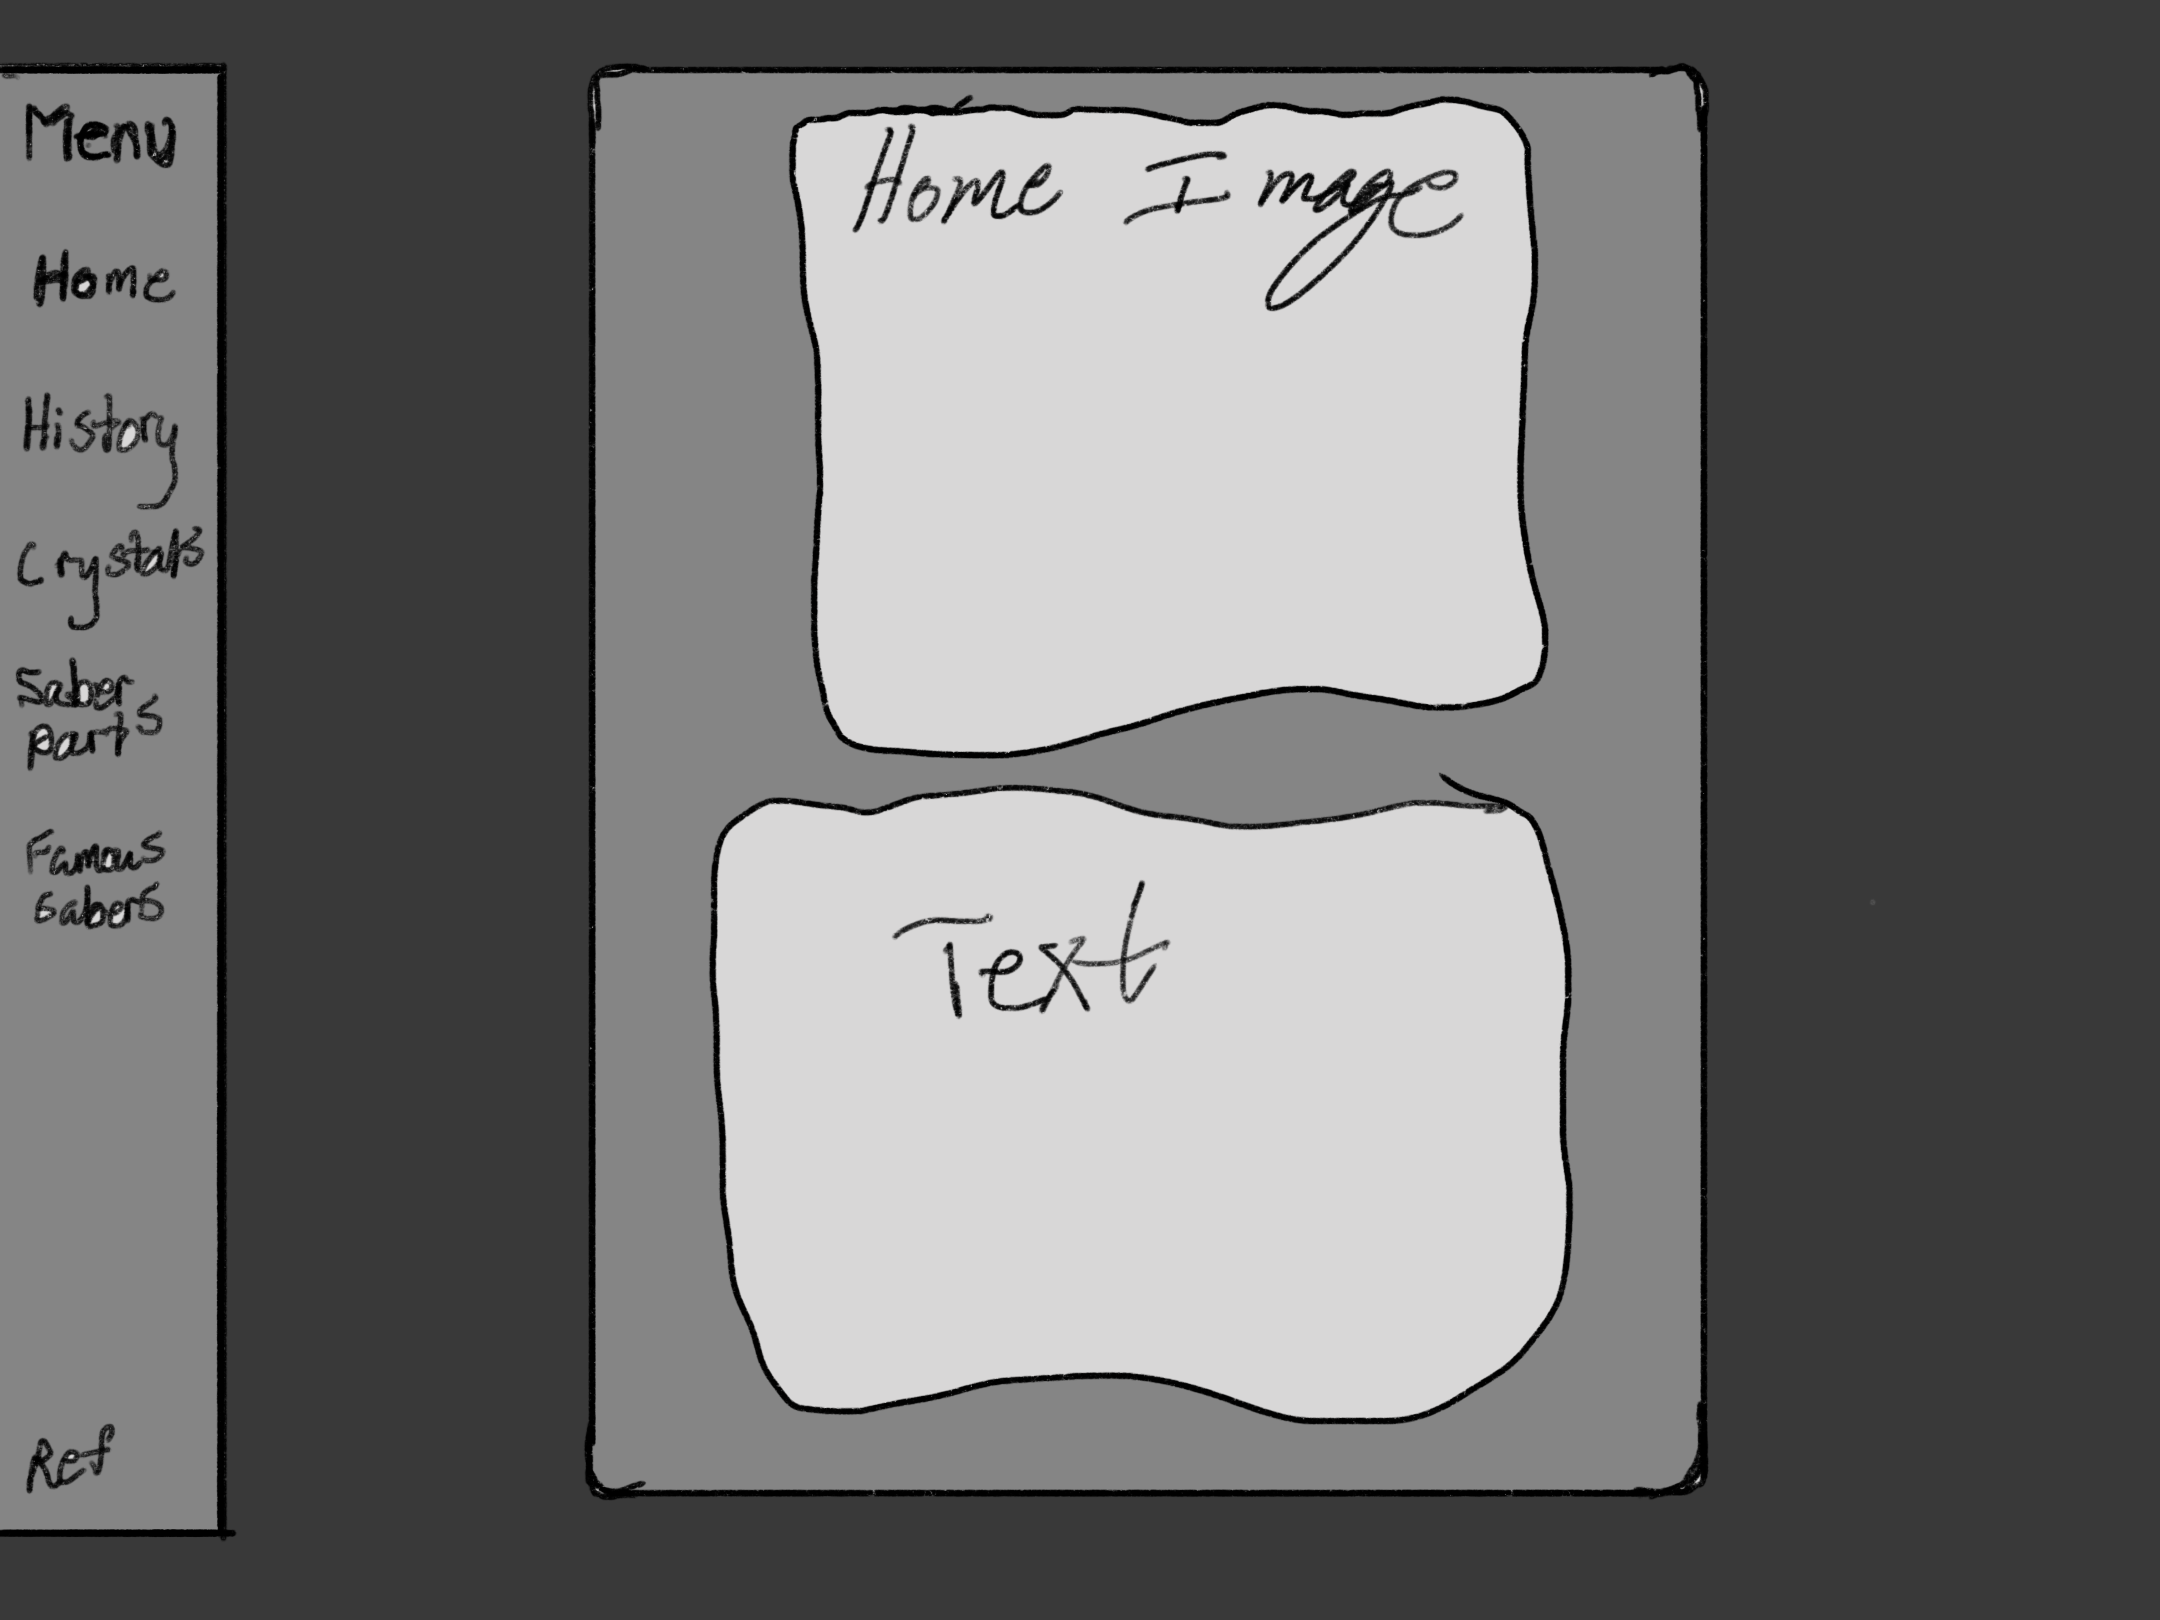 Menu
Home
History
Crystals
Saber
parts
Famous
Sabers
Ref
Home Image
Text